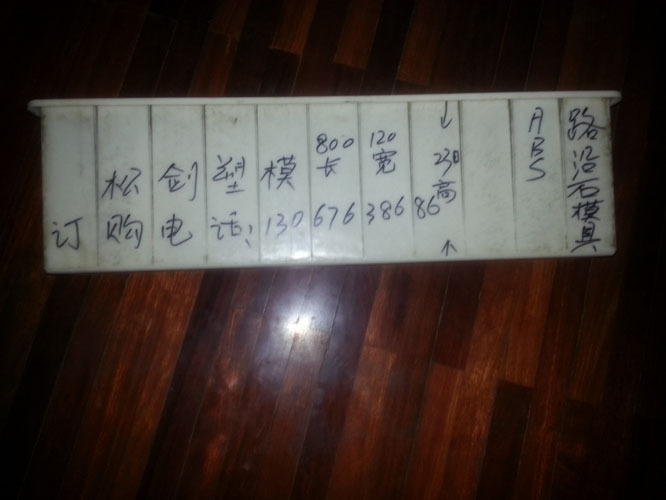 松剑塑模
订购电话:13067638686
800
长
120
宽
230
高
ABS
路沿石模具